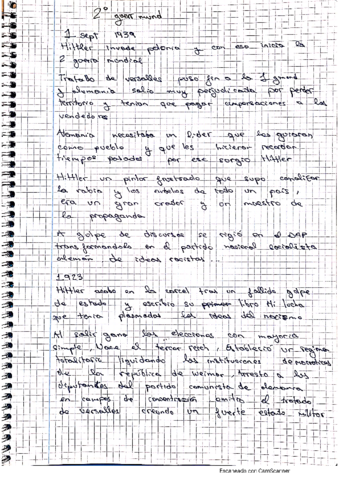 2º guerr mund
1 sept 1939
Hittler invade polonia y con eso inicia la
2 guerra mundial
Tratado de versalles puso fin a la 1 gmund
y alemania salio muy perjudicada por perder
territorio y tenian que pagar compensaciones a los
vencedores
Alemania necesitaba un lider que los guiaran
como pueblo y que les hicieran recordar
tiempos pasados por eso surgio Hittler
Hittler un pintor frustrado que supo canalizar
la rabia y los anhelos de todo un pais,
era un gran orador y un maestro de
la propaganda
A golpe de discursos se erigió en el DAP
transformandolo en el partido nacional socialista
alemán de ideas racistas...
1.923
Hittler acabo en la carcel tras un fallido golpe
de estado y escribio su libro Mi lucha
que tenia plasmadas las ideas del nazismo
Al salir gano las elecciones con mayoria
simple. Nace el tercer reich, establecio un regimen
totalitario liquidando las instituciones democraticas
de la república de weimar arresto a los
diputados del partido comunista de alemania
en campos de concentración omitio el tratado
de versalles creando un fuerte estado militar
Escaneado con CamScanner